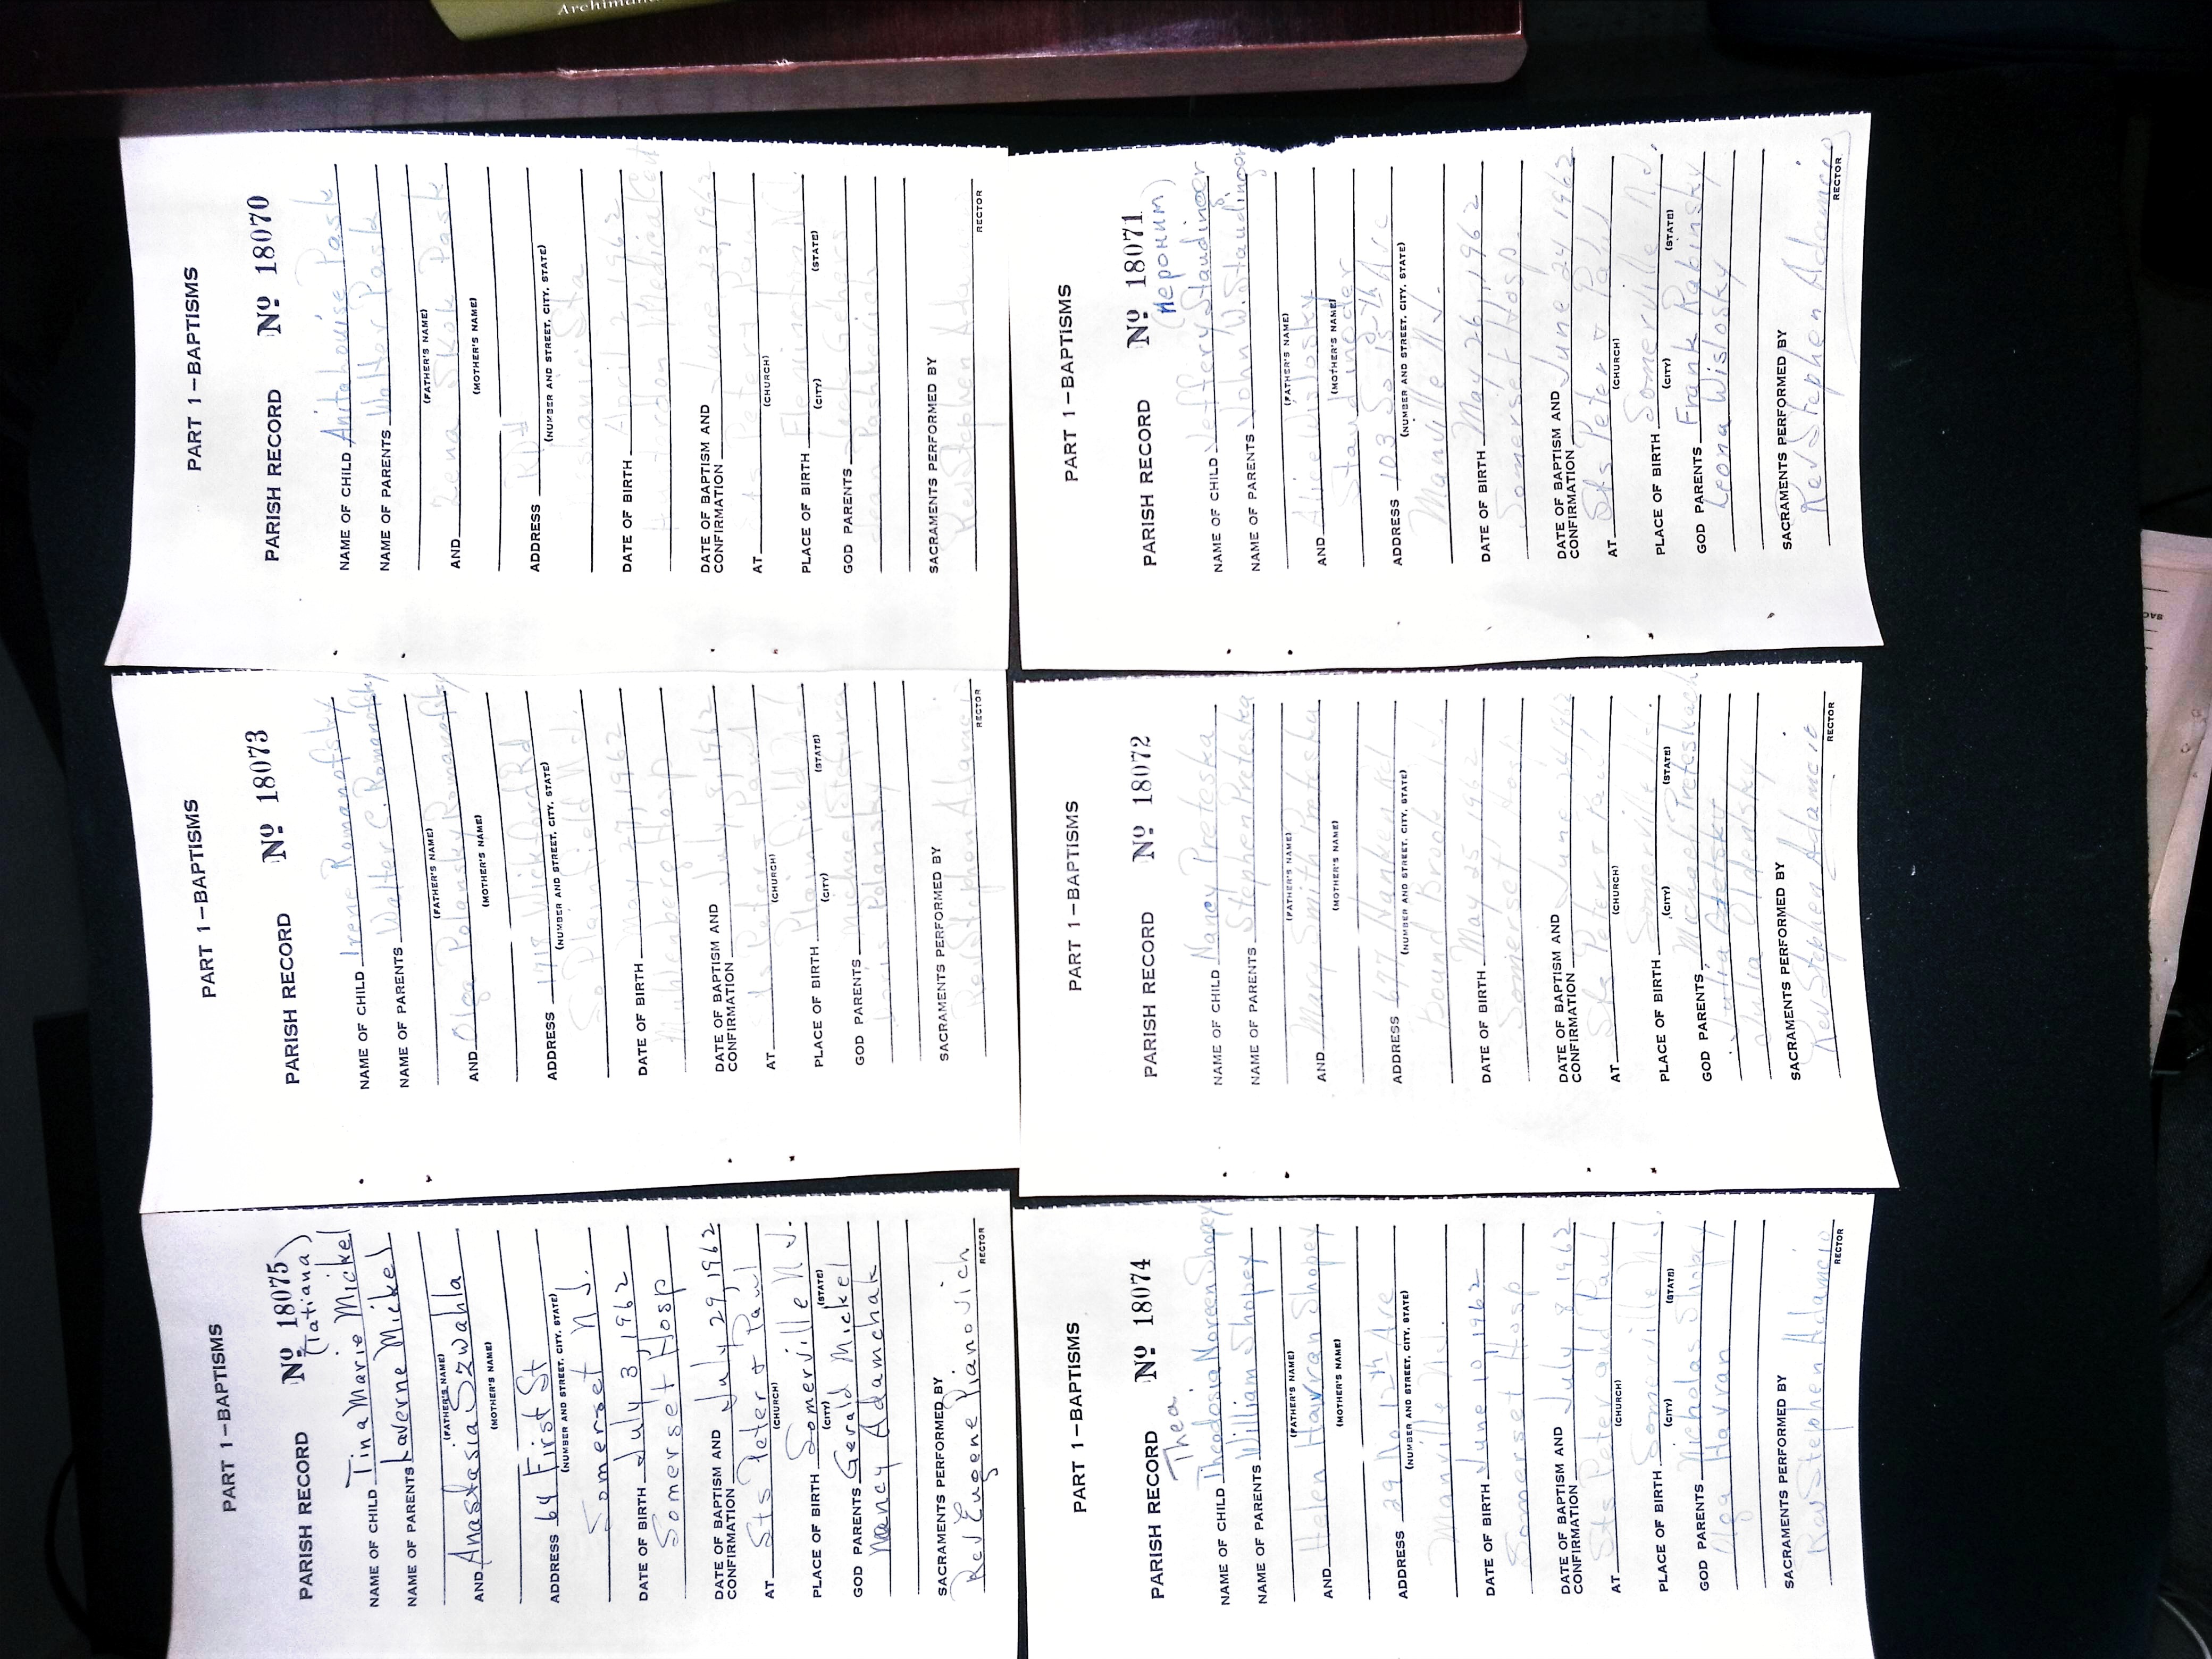 PART 1—BAPTISMS
PARISH RECORD Nº 18075
(Tatiana)
NAME OF CHILD Tina Marie Mickel
NAME OF PARENTS Laverne Mickel
(FATHER'S NAME)
AND Anastasia Szwahla
(MOTHER'S NAME)
ADDRESS 64 First St
(NUMBER AND STREET, CITY, STATE)
Somerset N J.
DATE OF BIRTH July 3, 1962
Somerset Hosp
DATE OF BAPTISM AND
CONFIRMATION July 29, 1962
AT Sts Peter & Paul
(CHURCH)
PLACE OF BIRTH Somerville N J.
(CITY) (STATE)
GOD PARENTS Gerald Mickel
Nancy Adamchak
SACRAMENTS PERFORMED BY
Rev Eugene Pianovich
RECTOR
PART 1—BAPTISMS
PARISH RECORD Nº 18073
NAME OF CHILD Irene Romanofsky
NAME OF PARENTS Walter C. Romanofsky
(FATHER'S NAME)
AND Olga Polansky Romanofsky
(MOTHER'S NAME)
ADDRESS 1718 Wickford Rd
(NUMBER AND STREET, CITY, STATE)
So Plainfield N.J.
DATE OF BIRTH May 27, 1962
Muhlenberg Hosp
DATE OF BAPTISM AND
CONFIRMATION July 8, 1962
AT Peter & Paul
(CHURCH)
PLACE OF BIRTH Plainfield N.J.
(CITY) (STATE)
GOD PARENTS Michael Stefura
Polansky
SACRAMENTS PERFORMED BY
Rev Stephen Adamcio
RECTOR
PART 1—BAPTISMS
PARISH RECORD Nº 18070
NAME OF CHILD Anita Louise Pask
NAME OF PARENTS Walter Pask
(FATHER'S NAME)
AND Zena Skok Pask
(MOTHER'S NAME)
ADDRESS RD
(NUMBER AND STREET, CITY, STATE)
Sta
DATE OF BIRTH April 2 1962
Medical Cent
DATE OF BAPTISM AND
CONFIRMATION June 23, 1962
AT Peter & Paul
(CHURCH)
PLACE OF BIRTH Flemington N.J.
(CITY) (STATE)
GOD PARENTS Gehers
Jean Pashkevich
SACRAMENTS PERFORMED BY
Rev Stephen
RECTOR
PART 1—BAPTISMS
PARISH RECORD Nº 18074
Thea
NAME OF CHILD Theodosia Noreen Shopey
NAME OF PARENTS William Shopey
(FATHER'S NAME)
AND Helen Havran Shopey
(MOTHER'S NAME)
ADDRESS 29 No 12th Ave
(NUMBER AND STREET, CITY, STATE)
Manville N.J.
DATE OF BIRTH June 10, 1962
Somerset Hosp
DATE OF BAPTISM AND
CONFIRMATION July 8, 1962
AT Sts Peter and Paul
(CHURCH)
PLACE OF BIRTH Somerville N.J.
(CITY) (STATE)
GOD PARENTS Nicholas Shopey
Olga Havran
SACRAMENTS PERFORMED BY
Rev Stephen Adamcio
RECTOR
PART 1—BAPTISMS
PARISH RECORD Nº 18072
NAME OF CHILD Nancy Preteska
NAME OF PARENTS Stephen Preteska
(FATHER'S NAME)
AND Mary Smith Preteska
(MOTHER'S NAME)
ADDRESS 677 Hanken Rd
(NUMBER AND STREET, CITY, STATE)
Bound Brook N.J.
DATE OF BIRTH May 25, 1962
Somerset Hosp
DATE OF BAPTISM AND
CONFIRMATION June 24 1962
AT Sts Peter & Paul
(CHURCH)
PLACE OF BIRTH Somerville N.J.
(CITY) (STATE)
GOD PARENTS Michael Preteskach
Julia
Julia Oldensky
SACRAMENTS PERFORMED BY
Rev Stephen Adamcio
RECTOR
PART 1—BAPTISMS
PARISH RECORD Nº 18071
(Иероним)
NAME OF CHILD Jeffery Staudinger
NAME OF PARENTS John W. Staudinger
(FATHER'S NAME)
AND Alice Wislosky
(MOTHER'S NAME)
Staudinger
ADDRESS 103 So 15th Ave
(NUMBER AND STREET, CITY, STATE)
Manville N J.
DATE OF BIRTH May 26, 1962
Somerset Hosp.
DATE OF BAPTISM AND
CONFIRMATION June 24 1962
AT Sts Peter & Paul
(CHURCH)
PLACE OF BIRTH Somerville N.J.
(CITY) (STATE)
GOD PARENTS Frank Rabinsky
Leona Wislosky
SACRAMENTS PERFORMED BY
Rev Stephen Adamcio
RECTOR